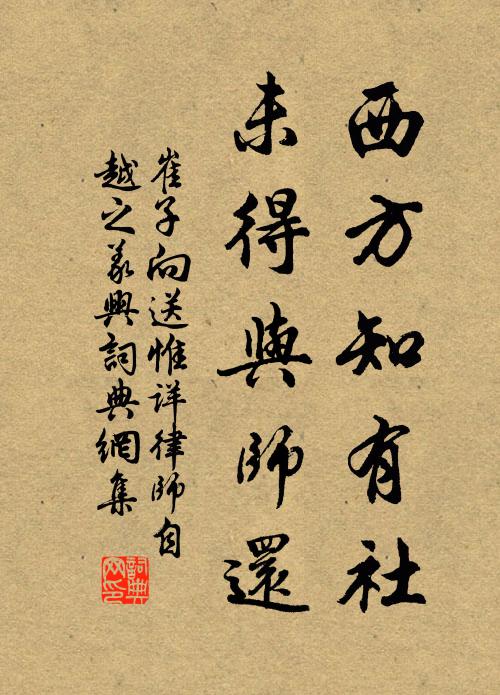 西方知有社
未得與師還
崔子向送惟詳律師自
越之義興詞典網集
詞典網印